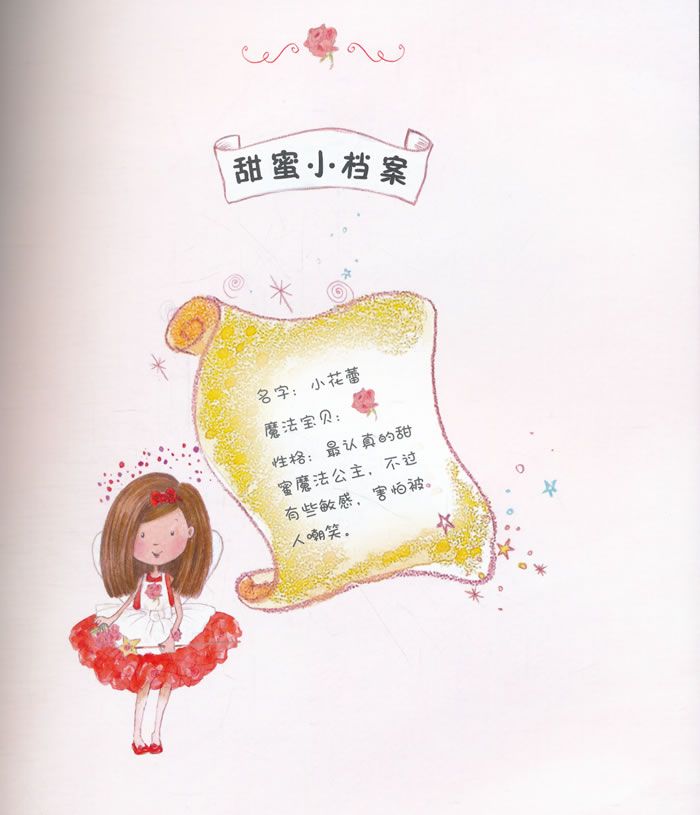 甜蜜小档案
名字：小花蕾
魔法宝贝：
性格：最认真的甜
蜜魔法公主，不过
有些敏感，害怕被
人嘲笑。